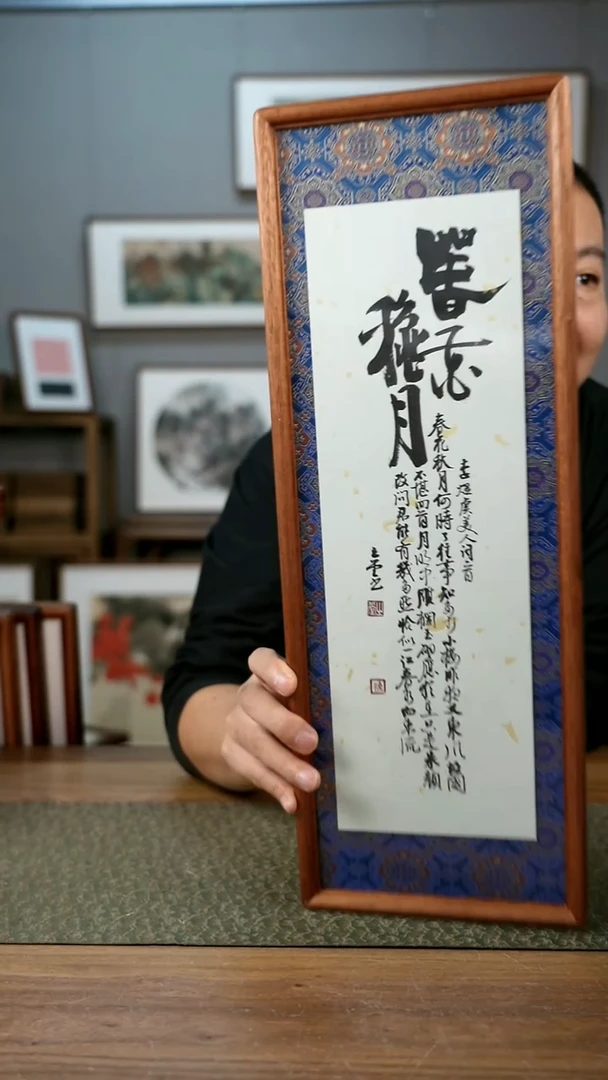 春花
穐月
李煜虞美人词一首
春花秋月何時了往事知多少小樓昨夜又東風故國
不堪回首月明中雕欄玉砌應猶在只是朱顏
改問君能有幾多愁恰似一江春水向東流